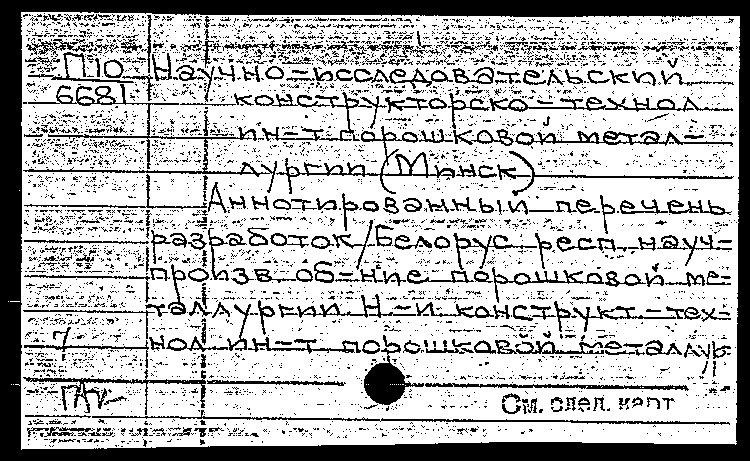 П10 Научно-исследовательский
6681 конструкторско-технол.
ин-т порошковой метал-
лургии (Минск)
Аннотированный перечень
разработок/Белорус. респ. науч.-
произв. об-ние порошковой ме-
таллургии. Н.-и. конструкт.-тех-
7 нол. ин-т порошковой металлур-
См. след. карт